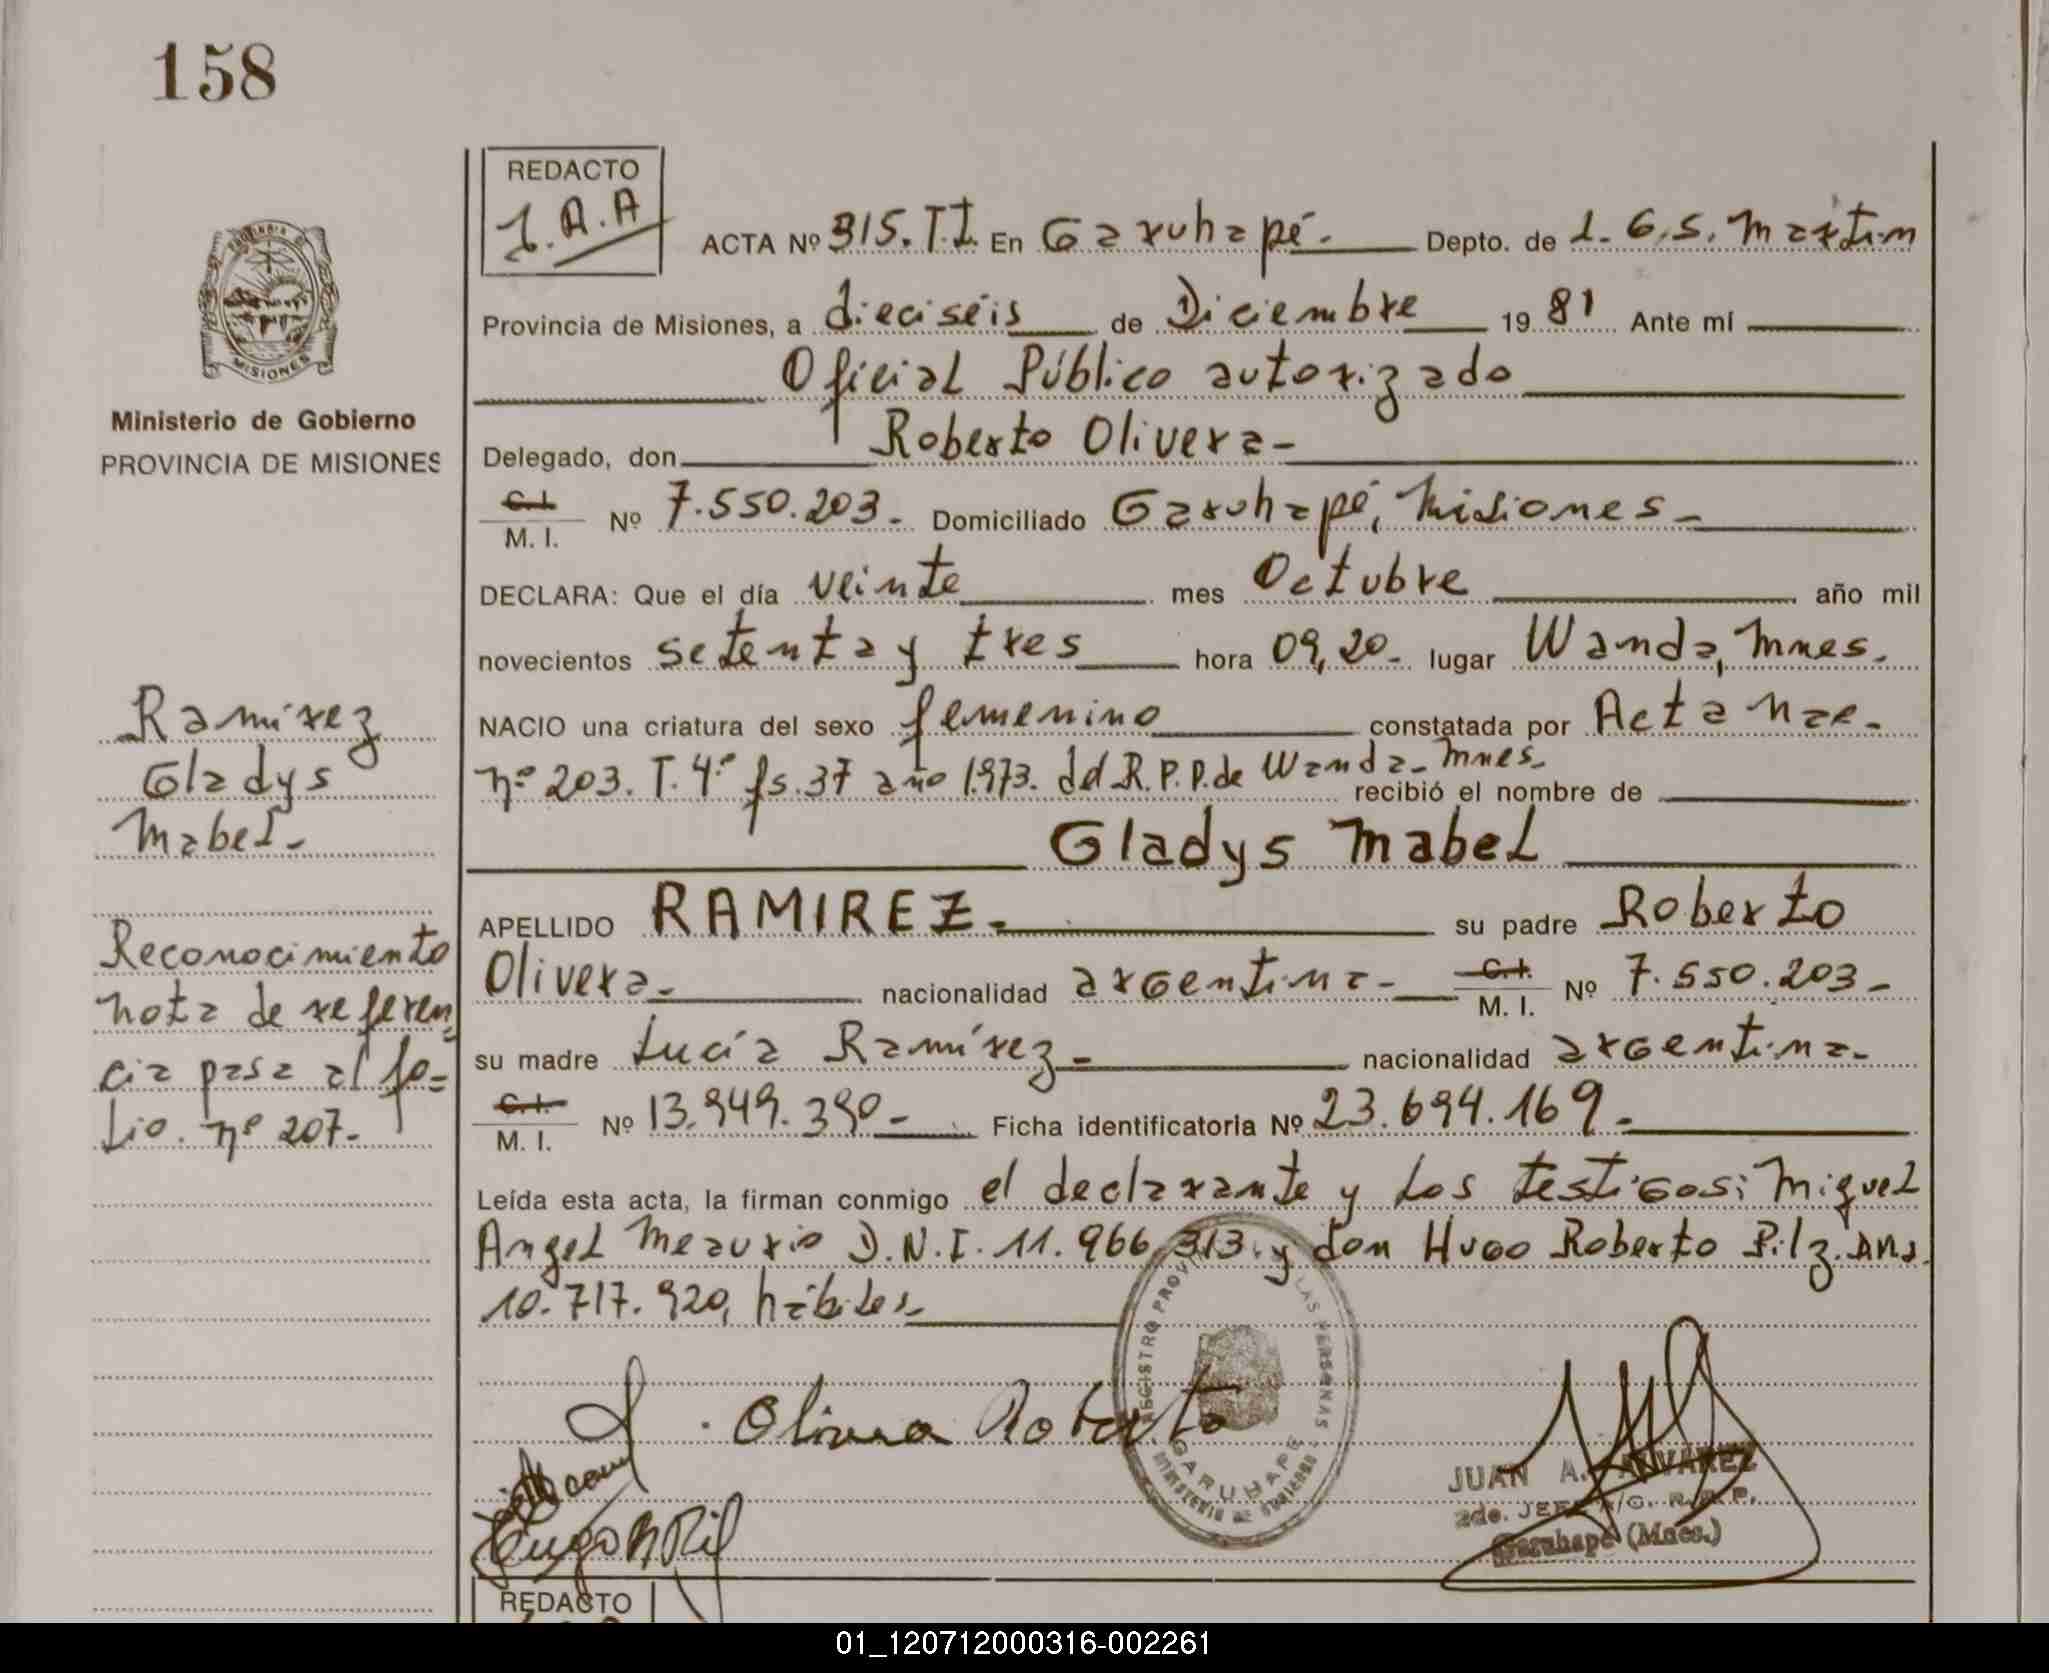 158
REDACTO
J.A.A
ACTA Nº 315. T.I. En Garuhapé. Depto. de L. G. S. Martin
Provincia de Misiones, a dieciséis de Diciembre 19 81 Ante mí
Oficial Público autorizado
Delegado, don Roberto Olivera-
C.I.
M. I. Nº 7.550.203. Domiciliado Garuhapé, Misiones-
DECLARA: Que el día veinte mes Octubre año mil
novecientos setenta y tres hora 09,20- lugar Wanda, Mnes.
NACIO una criatura del sexo femenino constatada por Acta Nac-
nº 203. T. 4º fs. 37 año 1.973. del R.P.P. de Wanda- Mnes- recibió el nombre de
Gladys Mabel
APELLIDO RAMIREZ- su padre Roberto
Olivera- nacionalidad argentina- C.I.
M. I. Nº 7.550.203-
su madre Lucía Ramírez- nacionalidad argentina-
C.I.
M. I. Nº 13.949.390- Ficha identificatoria Nº 23.694.169-
Leída esta acta, la firman conmigo el declarante y los testigos: Miguel
Angel Meaurio D.N.I. 11.966.313. y don Hugo Roberto Pilz. DNI.
10.717.920, hábiles-
Olivera Roberto
Hugo R Pil
REGISTRO PROVINCIAL LAS PERSONAS
GARUHAPE
MINISTERIO DE GOBIERNO
JUAN A. ALVAREZ
2do. JEFE A/C. R.P.P.
Garuhapé (Mnes.)
REDACTO
MISIONES
Ministerio de Gobierno
PROVINCIA DE MISIONES
Ramírez
Gladys
Mabel-
Reconocimiento
nota de referen
cia pasa al fo=
lio. nº 207-
01_120712000316-002261